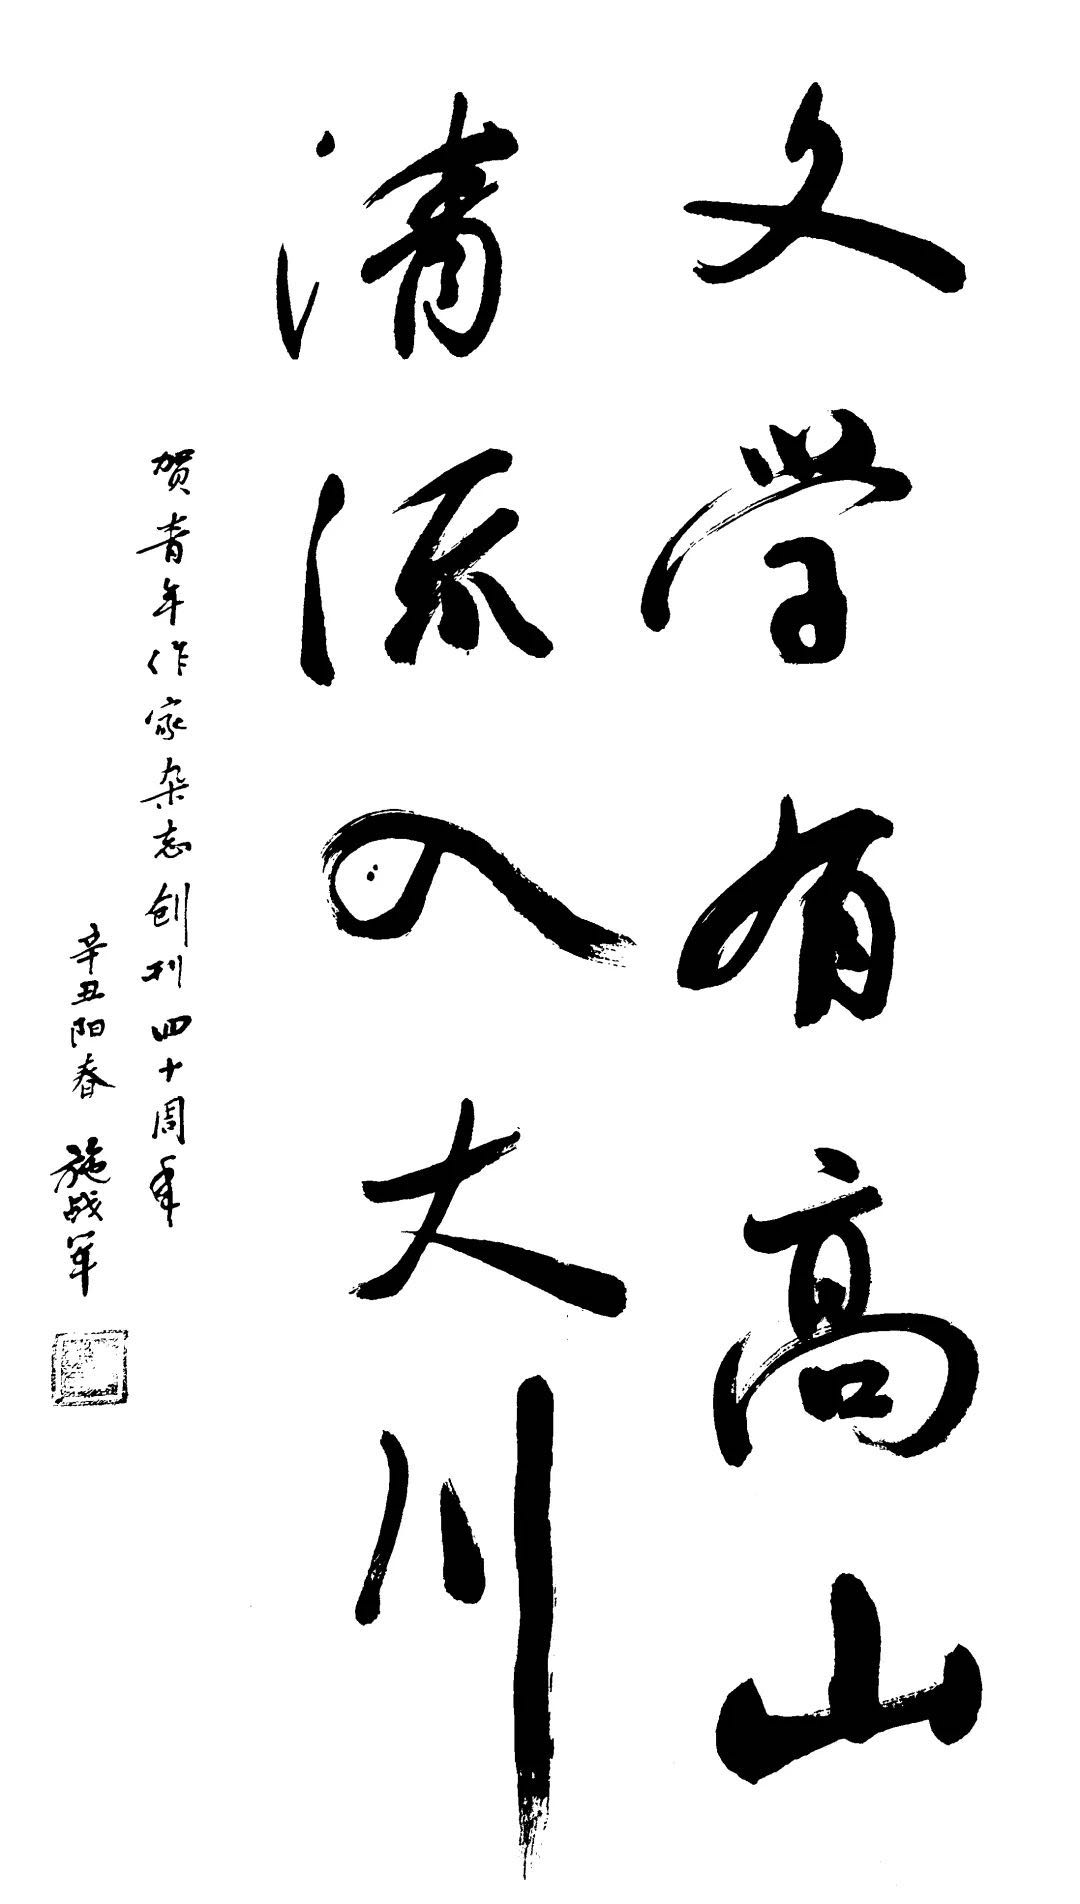 文学有高山
清流入大川
贺青年作家杂志创刊四十周年
辛丑阳春 施战军